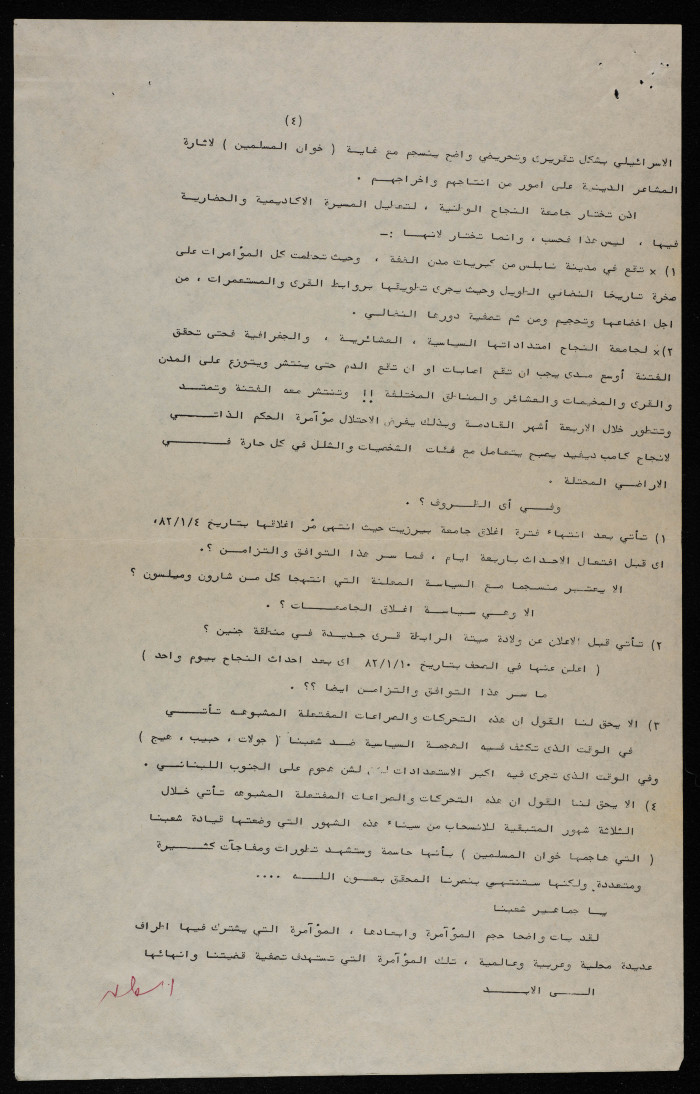 (٤)
الاسرائيلي بشكل تقريرى وتحريضي واضح ينسجم مع غاية ( خوان المسلمين ) لاثارة
المشاعر الدينية على امور من انتاجهم واخراجهم .
اذن تختار جامعة النجاح الوطنية ، لتعطيل المسيرة الاكاديمية والحضارية
فيها ، ليس هذا فحسب ، وانما تختار لانها :ـ
١) × تقع في مدينة نابلس من كبريات مدن الضفة ، وحيث تحطمت كل المؤامرات على
صخرة تاريخها النضالي الطويل وحيث يجرى تطويقها بروابط القرى والمستعمرات ، من
اجل اخضاعها وتحجيم ومن ثم تصفية دورها النضالي .
٢)× لجامعة النجاح امتداداتها السياسية ، العشائرية ، والجغرافية فحتى تحقق
الفتنة أوسع مدى يجب ان تقع اصابات او ان تقع الدم حتى ينتشر ويتوزع على المدن
والقرى والمخيمات والعشائر والمناطق المختلفة !! وتنتشر معه الفتنة وتمتد
وتتطور خلال الاربعة أشهر القادمة وبذلك يفرض الاحتلال مؤآمرة الحكم الذاتي
لانجاح كامب ديفيد يصبح يتعامل مع فئات الشخصيات والشلل في كل حارة في
الاراضي المحتلة .
وفي أى الظروف ؟ .
١) تأتي بعد انتهاء فترة اغلاق جامعة بيرزيت حيث انتهى مّر اغلاقها بتاريخ ٨٢/١/٤،
اى قبل افتعال الاحداث باربعة ايام ، فما سر هذا التوافق والتزامن ؟.
الا يعتبر منسجما مع السياسة المعلنة التي انتهجا كل من شارون وميلسون ؟
الا وهي سياسة اغلاق الجامعات ؟ .
٢) تأتي قبل الاعلان عن ولادة ميتة الرابطة قرى جديدة في منطقة جنين ؟
( اعلن عنها في الصحف بتاريخ ٨٢/١/١٠ اى بعد احداث النجاح بيوم واحد )
ما سر هذا التوافق والتزامن ايضا ؟؟ .
٣) الا يحق لنا القول ان هذه التحركات والصراعات المفتعلة المشبوهه تأتي
في الوقت الذى تكثف فيه الهجمة السياسية ضد شعبنا ( جولات ، حبيب ، هيج )
وفي الوقت الذى تجرى فيه اكبر الاستعدادات لشن هجوم على الجنوب اللبناني .
٤) الا يحق لنا القول ان هذه التحركات والصراعات المفتعلة المشبوهه تأتي خلال
الثلاثة شهور المتبقية للانسحاب من سيناء هذه الشهور التي وصفتها قيادة شعبنا
( التي هاجمها خوان المسلمين ) بأنها حاسمة وستشهد تطورات ومفاجآت كثيرة
ومتعددة ولكنها ستنتهي بنصرنا المحقق بعون الله ....
يا جماهير شعبنا
لقد بات واضحا حجم المؤآمرة وابعادها ، المؤآمرة التي يشترك فيها اطراف
عديدة محلية وعربية وعالمية ، تلك المؤآمرة التي تستهدف تصفية قضيتنا وانهائها
الى الابد